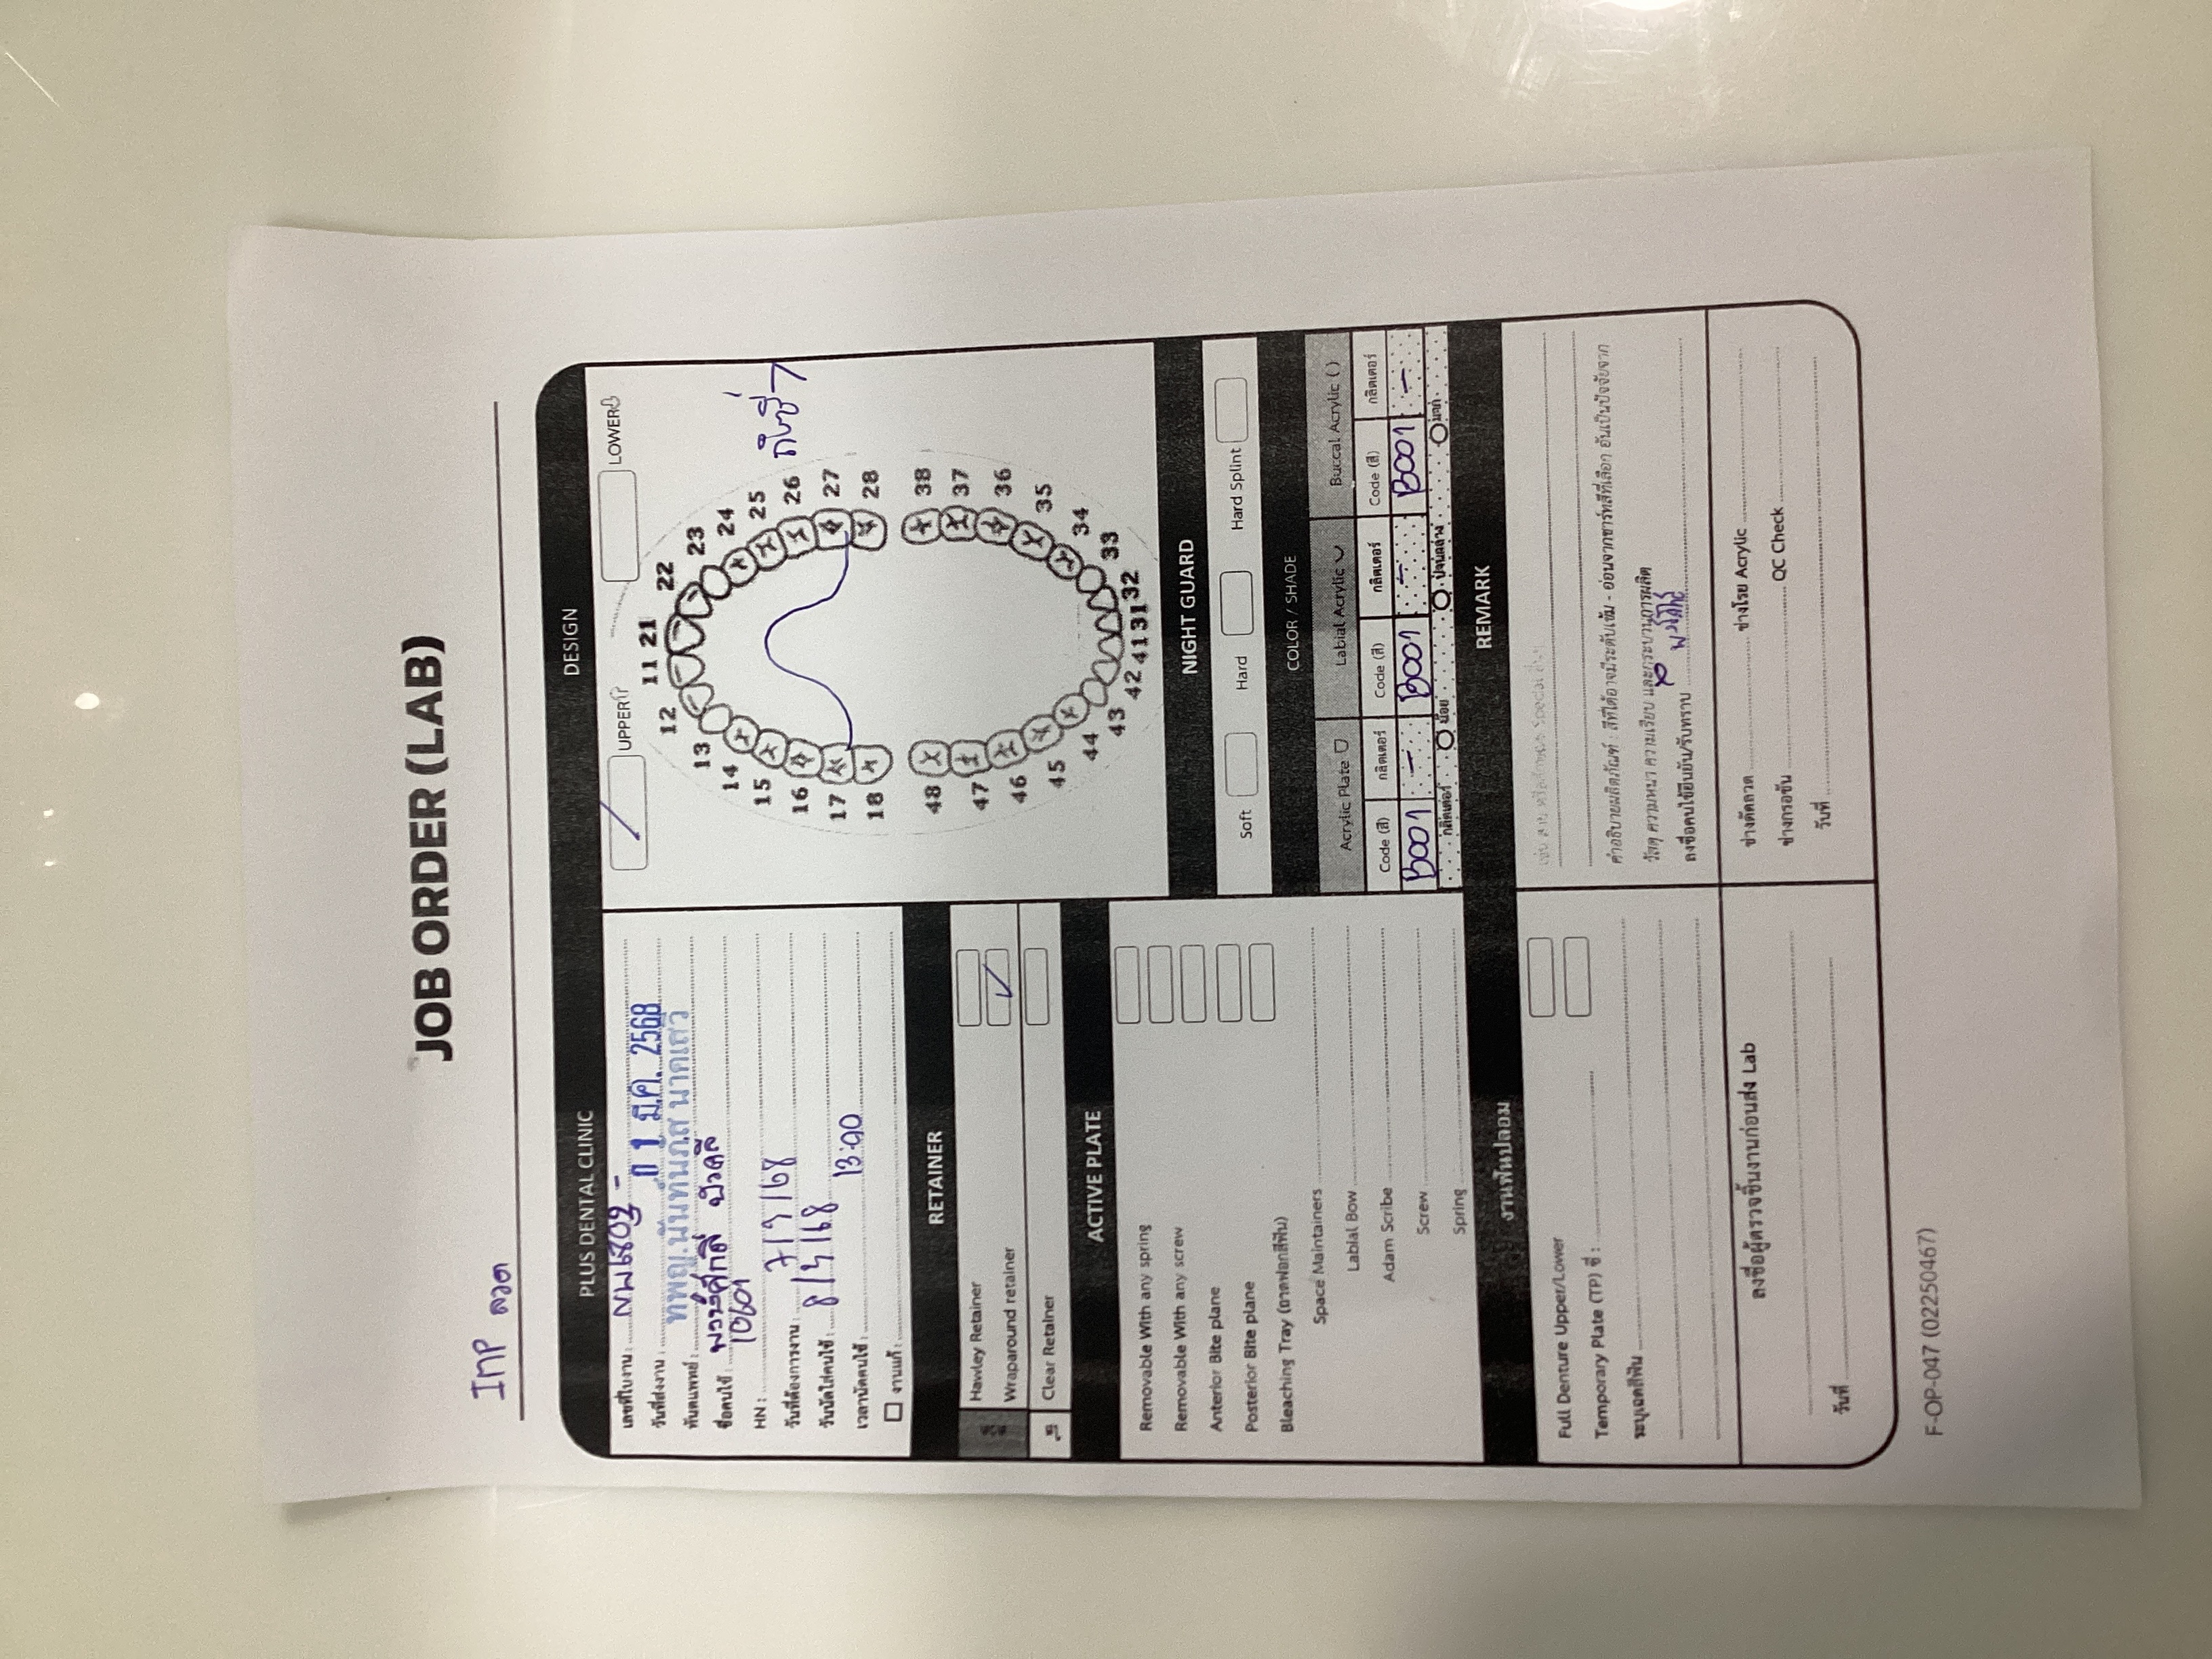 JOB ORDER (LAB)
IMP ลวด
PLUS DENTAL CLINIC
เลขที่ใบงาน :
วันที่ส่งงาน : 0 1 มี.ค. 2568
ทันตแพทย์ : ทพญ.นันท์นภัส นาคเสวี
ชื่อคนไข้ : พงษ์ศักดิ์
HN : 10601
วันที่ต้องการงาน : 7/3/68
วันนัดใส่คนไข้ : 8/3/68
เวลานัดคนไข้ : 13:00
งานแก้ :
RETAINER
ลวด
Hawley Retainer
Wraparound retainer ✓
ใส
Clear Retainer
ACTIVE PLATE
Removable With any spring
Removable With any screw
Anterior Bite plane
Posterior Bite plane
Bleaching Tray (ถาดฟอกสีฟัน)
Space Maintainers
Labial Bow
Adam Scribe
Screw
Spring
งานฟันปลอม
Full Denture Upper/Lower
Temporary Plate (TP) ซี่ :
ระบุเฉดสีฟัน
ลงชื่อผู้ตรวจชิ้นงานก่อนส่ง Lab
วันที่
DESIGN
/ UPPER LOWER
11 21
12 22
13 23
14 24
15 25
16 26 ถึงซี่ 7
17 27
18 28
48 38
47 37
46 36
45 35
44 34
43 33
42 41 31 32
NIGHT GUARD
Soft Hard Hard Splint
COLOR / SHADE
Acrylic Plate Labial Acrylic Buccal Acrylic ( )
Code (สี) กลิตเตอร์ Code (สี) กลิตเตอร์ Code (สี) กลิตเตอร์
B001 - B001 - B001 -
กลิตเตอร์ น้อย ปานกลาง มาก
REMARK
เช่น ลาย หรือลักษณะ Special อื่นๆ
คำอธิบายผลิตภัณฑ์ : สีที่ได้อาจมีระดับเข้ม - อ่อนจากชาร์ทสีที่เลือก อันเป็นปัจจัยจาก
วัสดุ ความหนา ความเรียบ และกระบวนการผลิต
ลงชื่อคนไข้ยืนยัน/รับทราบ
ช่างดัดลวด ช่างโรย Acrylic
ช่างกรอขัน QC Check
วันที่
F-OP-047 (02250467)